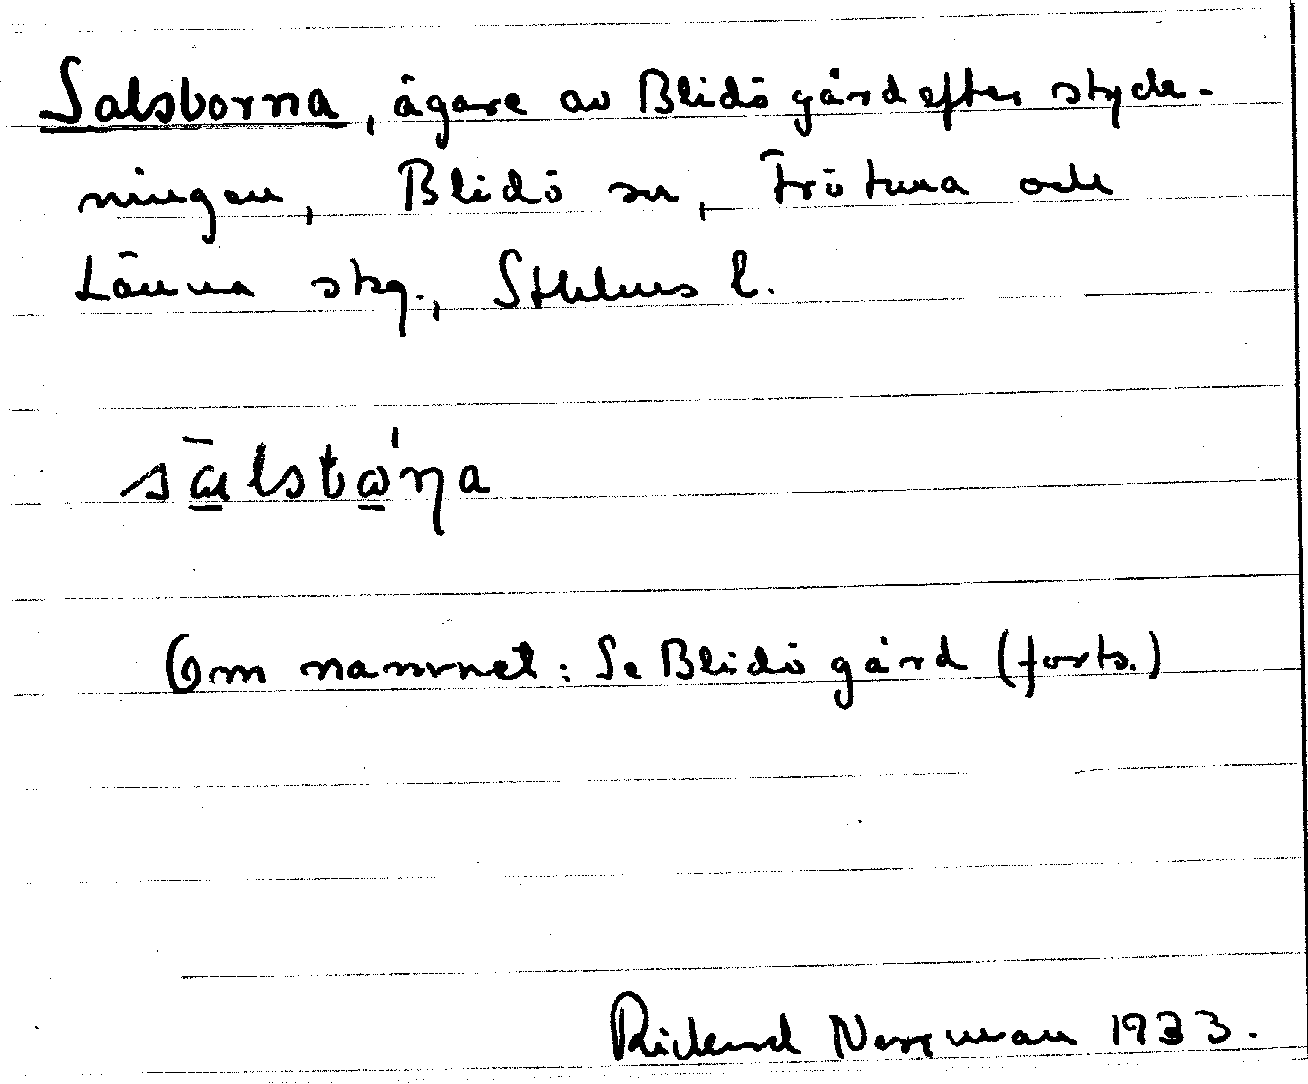 Salsborna, ägare av Blidö gård efter styck-
ningen, Blidö sn, Frötuna och
Länna skg., Sthlms l.
sālsbω'ɳa
Om namnet: Se Blidö gård (forts.)
Rickard Norrman 1933.